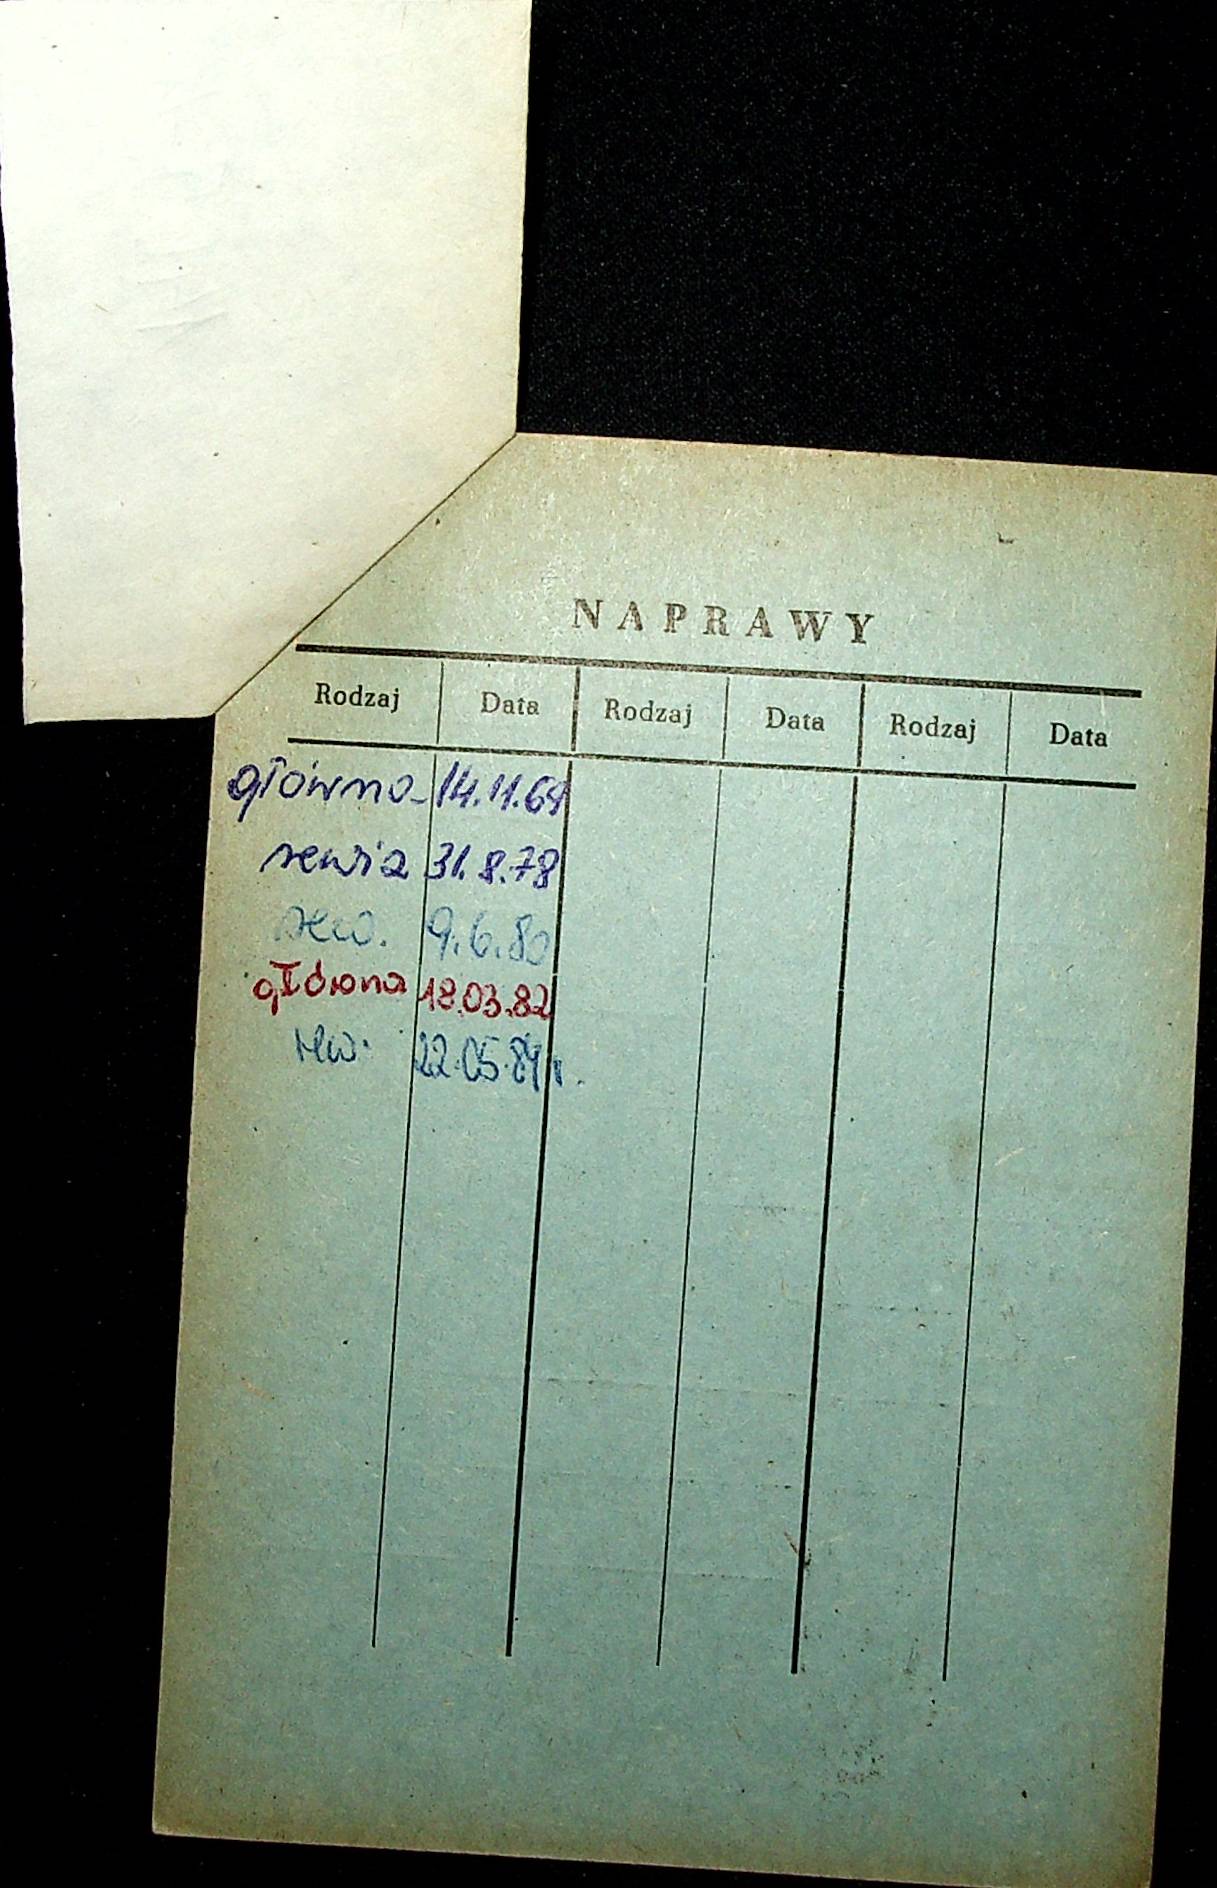 NAPRAWY
Rodzaj Data Rodzaj Data Rodzaj Data
główna 14.11.69
rewizja 31.8.78
rew. 9.6.80
główna 18.03.82
rew. 22.05.84r.